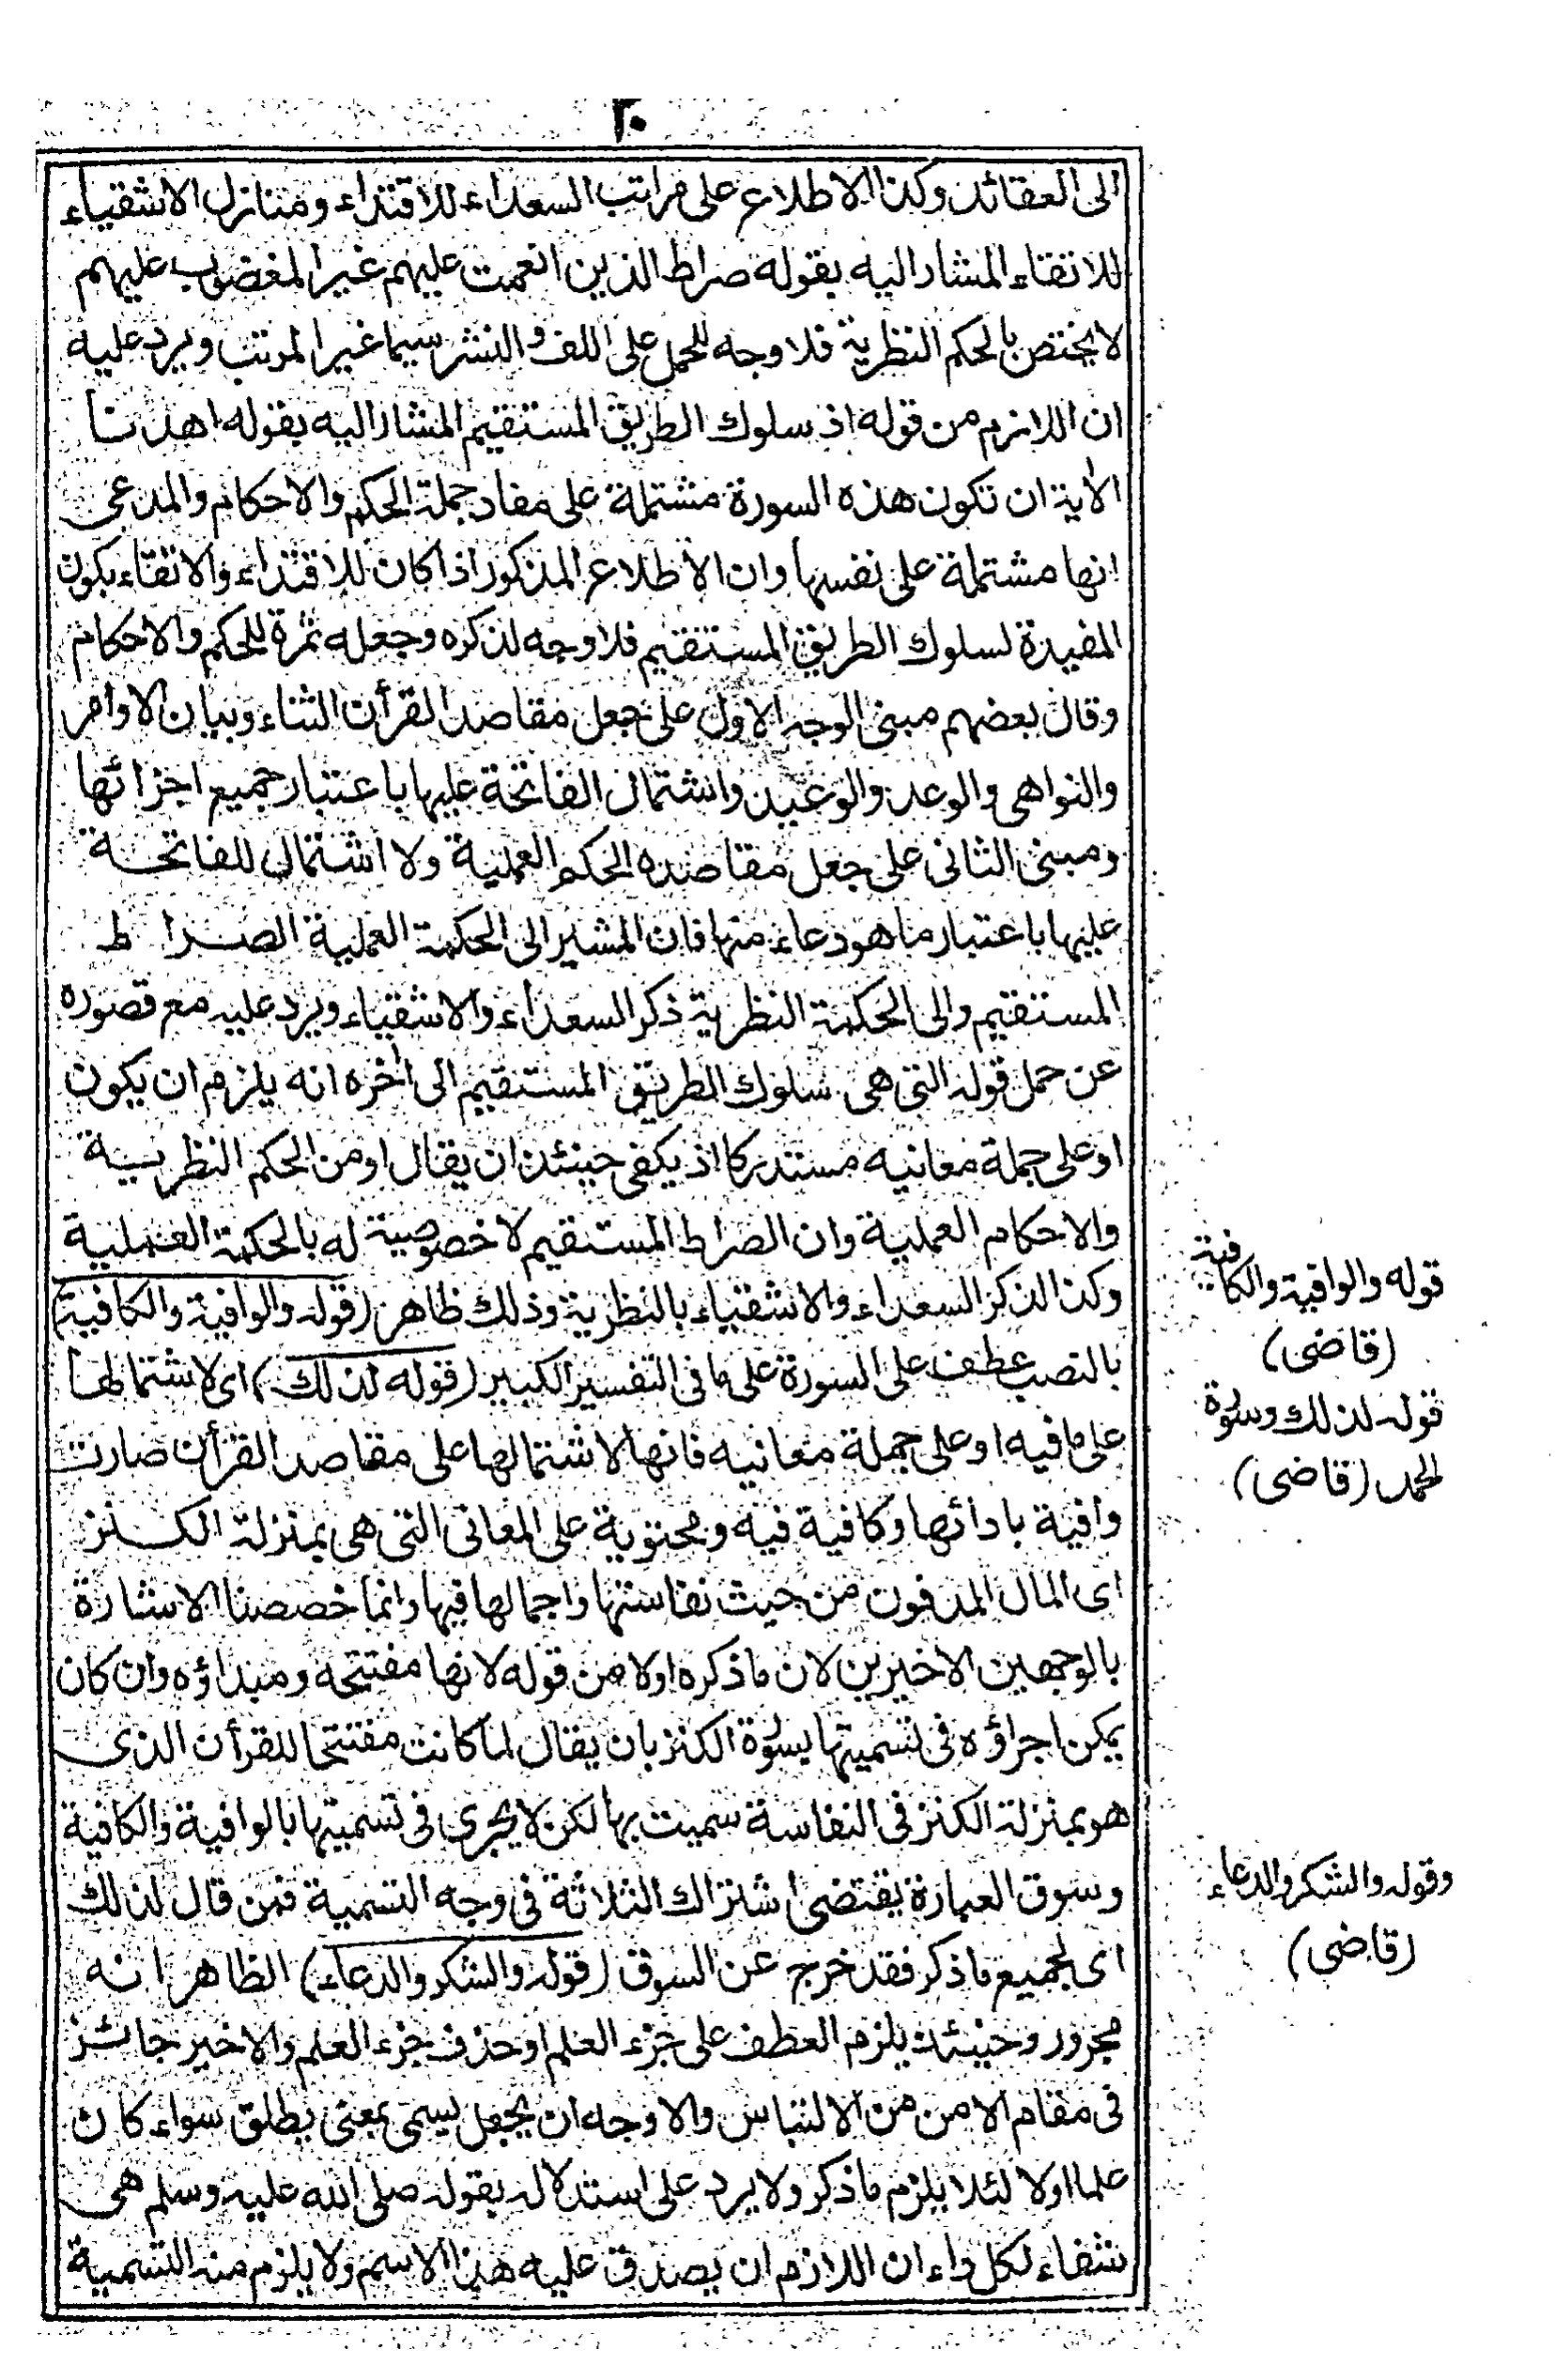 ٢٠
الى العقائد وكذا الاطلاع على مراتب السعداء للاقتداء ومنازل الاشقياء
للاتقاء المشار اليه بقوله صراط الذين انعمت عليهم غير المغضوب عليهم
لا يختص بالحكم النظرية فلا وجه للحمل على اللف والنشر سيما غير المرتب ويرد عليه
ان اللازم من قوله اذ سلوك الطريق المستقيم المشار اليه بقوله اهدنا
الأية ان تكون هذه السورة مشتملة على مفاد جملة الحكم والاحكام والمدعى
انها مشتملة على نفسها وان الاطلاع المذكور اذا كان للاقتداء والاتقاء يكون
المفيدة لسلوك الطريق المستقيم فلا وجه لذكره وجعله ثمرة للحكم والاحكام
وقال بعضهم مبنى الوجه الاول على جعل مقاصد القرأن الثناء وبيان الاوامر
والنواهى والوعد والوعيد واشتمال الفاتحة عليها باعتبار جميع اجزائها
ومبنى الثانى على جعل مقاصده الحكم العملية ولا اشتمال للفاتحة
عليها باعتبار ما هو دعاء منها فان المشير الى الحكمة العملية الصراط
المستقيم والى الحكمة النظرية ذكر السعداء والاشقياء ويرد عليه مع قصوره
عن حمل قوله التى هى سلوك الطريق المستقيم الى أخره انه يلزم ان يكون
او على جملة معانيه مستدركا اذ يكفى حينئذ ان يقال او من الحكم النظرية
والاحكام العملية وان الصراط المستقيم لا خصوصية له بالحكمة العملية
وكذا الذكر السعداء والاشقياء بالنظرية وذلك ظاهر (قوله والوافية والكافية)
بالنصب عطف على السورة على ما فى التفسير الكبير (قوله لذلك) اى لاشتمالها
على ما فيه او على جملة معانيه فانها لاشتمالها على مقاصد القرأن صارت
وافية بادائها وكافية فيه ومحتوية على المعانى التى هى بمنزلة الكنز
اى المال المدفون من حيث نفاستها واجمالها فيها وانما خصصنا الاشارة
بالوجهين الاخيرين لان ما ذكره اولا من قوله لانها مفتتحه ومبداؤه وان كان
يمكن اجراؤه فى تسميتها بسورة الكنز بان يقال لما كانت مفتتحا للقرأن الذى
هو بمنزلة الكنز فى النفاسة سميت بها لكن لا يجرى فى تسميتها بالوافية والكافية
وسوق العبارة يقتضى اشتراك الثلاثة فى وجه التسمية فمن قال لذلك
اى لجميع ما ذكر فقد خرج عن السوق (قوله والشكر والدعاء) الظاهر انه
مجرور وحينئذ يلزم العطف على جزء العلم او حذف جزء العلم والاخير جائز
فى مقام الامن من الالتباس والاوجه ان يجعل يسمى بمعنى يطلق سواء كان
علما اولا لئلا يلزم ما ذكر ولا يرد على استدلاله بقوله صلى الله عليه وسلم هى
شفاء لكل داء ان اللازم ان يصدق عليه هذا الاسم ولا يلزم منه التسمية
قوله والوافية والكافية
(قاضى)
قوله لذلك وسورة
الحمد (قاضى)
وقوله والشكر والدعاء
(قاضى)